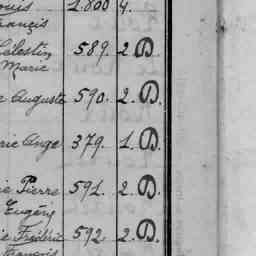 ouis 2.800 4.
rançois
Célestin 589. 2. D.
Marie
Auguste 590. 2. D.
rie Ange 379. 1. D.
ie Pierre 591. 2. D.
Eugène
ie Frédéric 592. 2. D.
François